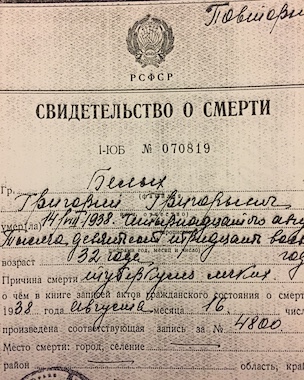 Повторн
РСФСР
СВИДЕТЕЛЬСТВО О СМЕРТИ
I-ЮБ № 070819
Гр. Белых
Григорий Григорьевич
умер(ла) 14/VIII 1938. четырнадцатого авг
тысяча девятьсот тридцать вось
(год, месяц и число)
возраст 32 года год
Причина смерти туберкулез легких
о чём в книге записей актов гражданского состояния о смерти
1938 августа месяца 16 числ
произведена соответствующая запись за № 4800
Место смерти: город, селение
район область, край